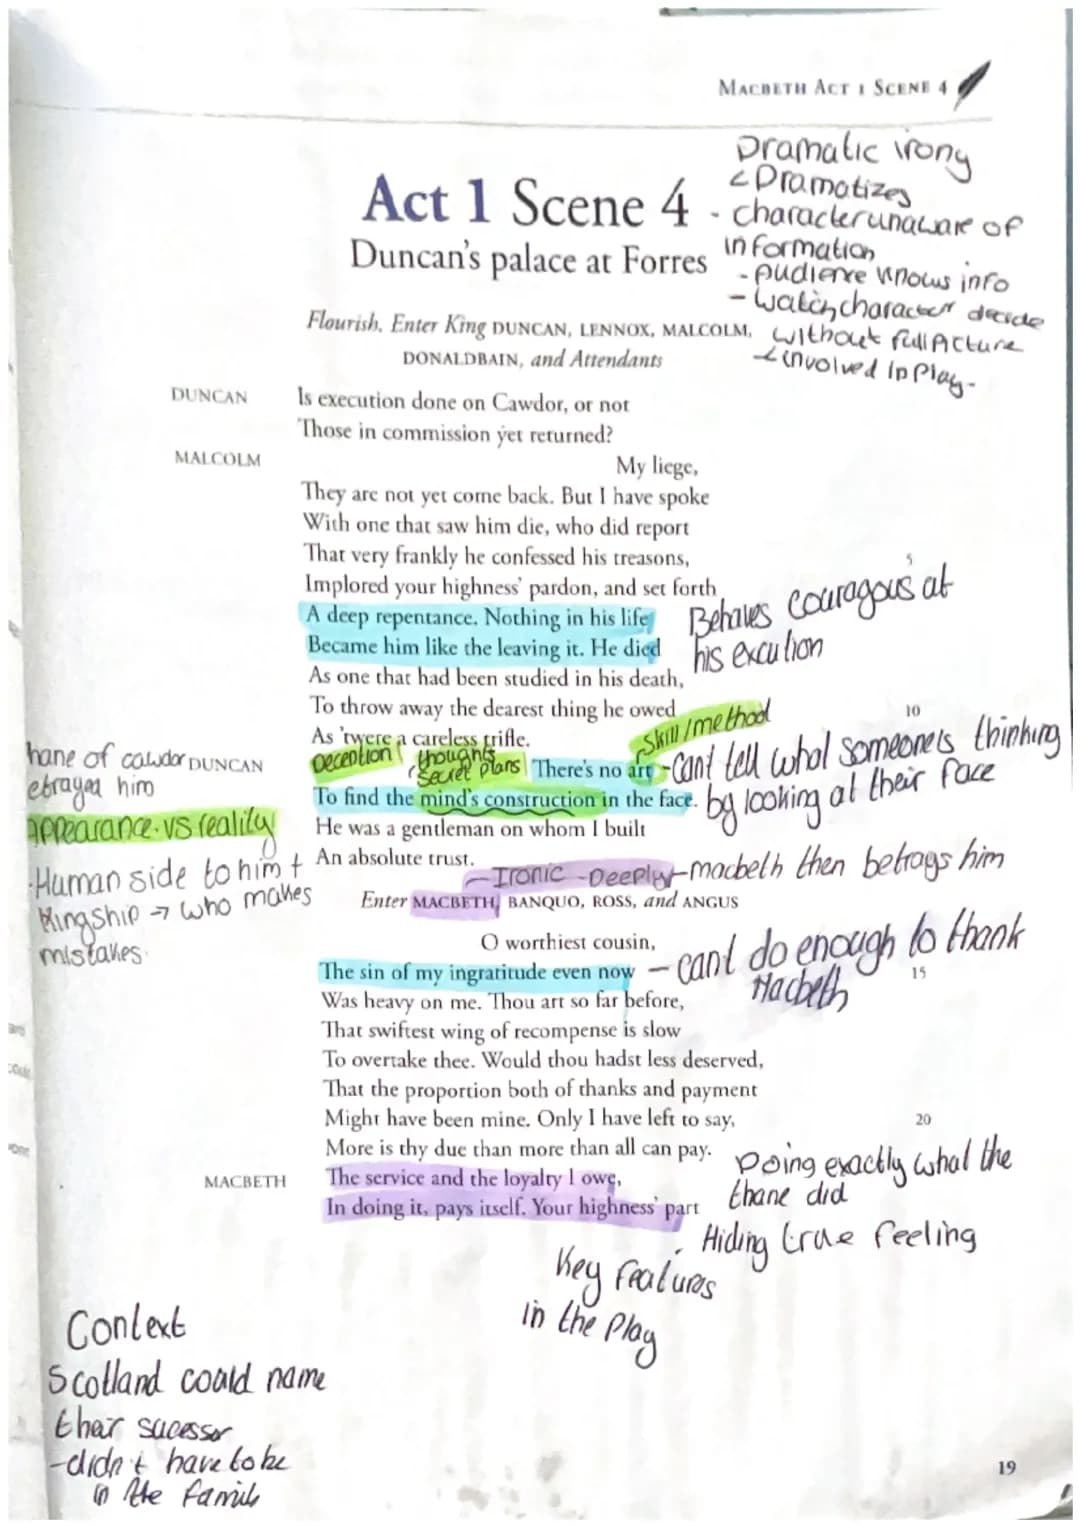 MACBETH ACT 1 SCENE 4
Dramatic irony
<Dramatizes
- character unaware of
information
- Audience knows info
- Watch character decide
without full picture
involved in play-
Act 1 Scene 4
Duncan's palace at Forres
Flourish. Enter King DUNCAN, LENNOX, MALCOLM,
DONALDBAIN, and Attendants
DUNCAN Is execution done on Cawdor, or not
Those in commission yet returned?
MALCOLM My liege,
They are not yet come back. But I have spoke
With one that saw him die, who did report
That very frankly he confessed his treasons, 5
Implored your highness' pardon, and set forth
A deep repentance. Nothing in his life
Became him like the leaving it. He died
Behaves couragous at
his excution
As one that had been studied in his death,
To throw away the dearest thing he owed 10
As 'twere a careless trifle.
Skill/method
Deception thoughts
secret plans
DUNCAN There's no art
To find the mind's construction in the face.
-Cant tell what someone is thinking
by looking at their face
He was a gentleman on whom I built
An absolute trust.
hane of cawdor
etrayed him
appearance vs reality
-Human side to him +
Kingship → who makes
mistakes.
-Ironic -Deeply-macbeth then betrays him
Enter MACBETH, BANQUO, ROSS, and ANGUS
O worthiest cousin,
The sin of my ingratitude even now 15
- cant do enough to thank
Macbeth
Was heavy on me. Thou art so far before,
That swiftest wing of recompense is slow
To overtake thee. Would thou hadst less deserved,
That the proportion both of thanks and payment
Might have been mine. Only I have left to say, 20
More is thy due than more than all can pay.
MACBETH The service and the loyalty I owe,
In doing it, pays itself. Your highness' part
Doing exactly what the
thane did
. Hiding true feeling
Key features
in the play
Context
Scotland could name
their sucessor
-didn't have to be
in the family
19